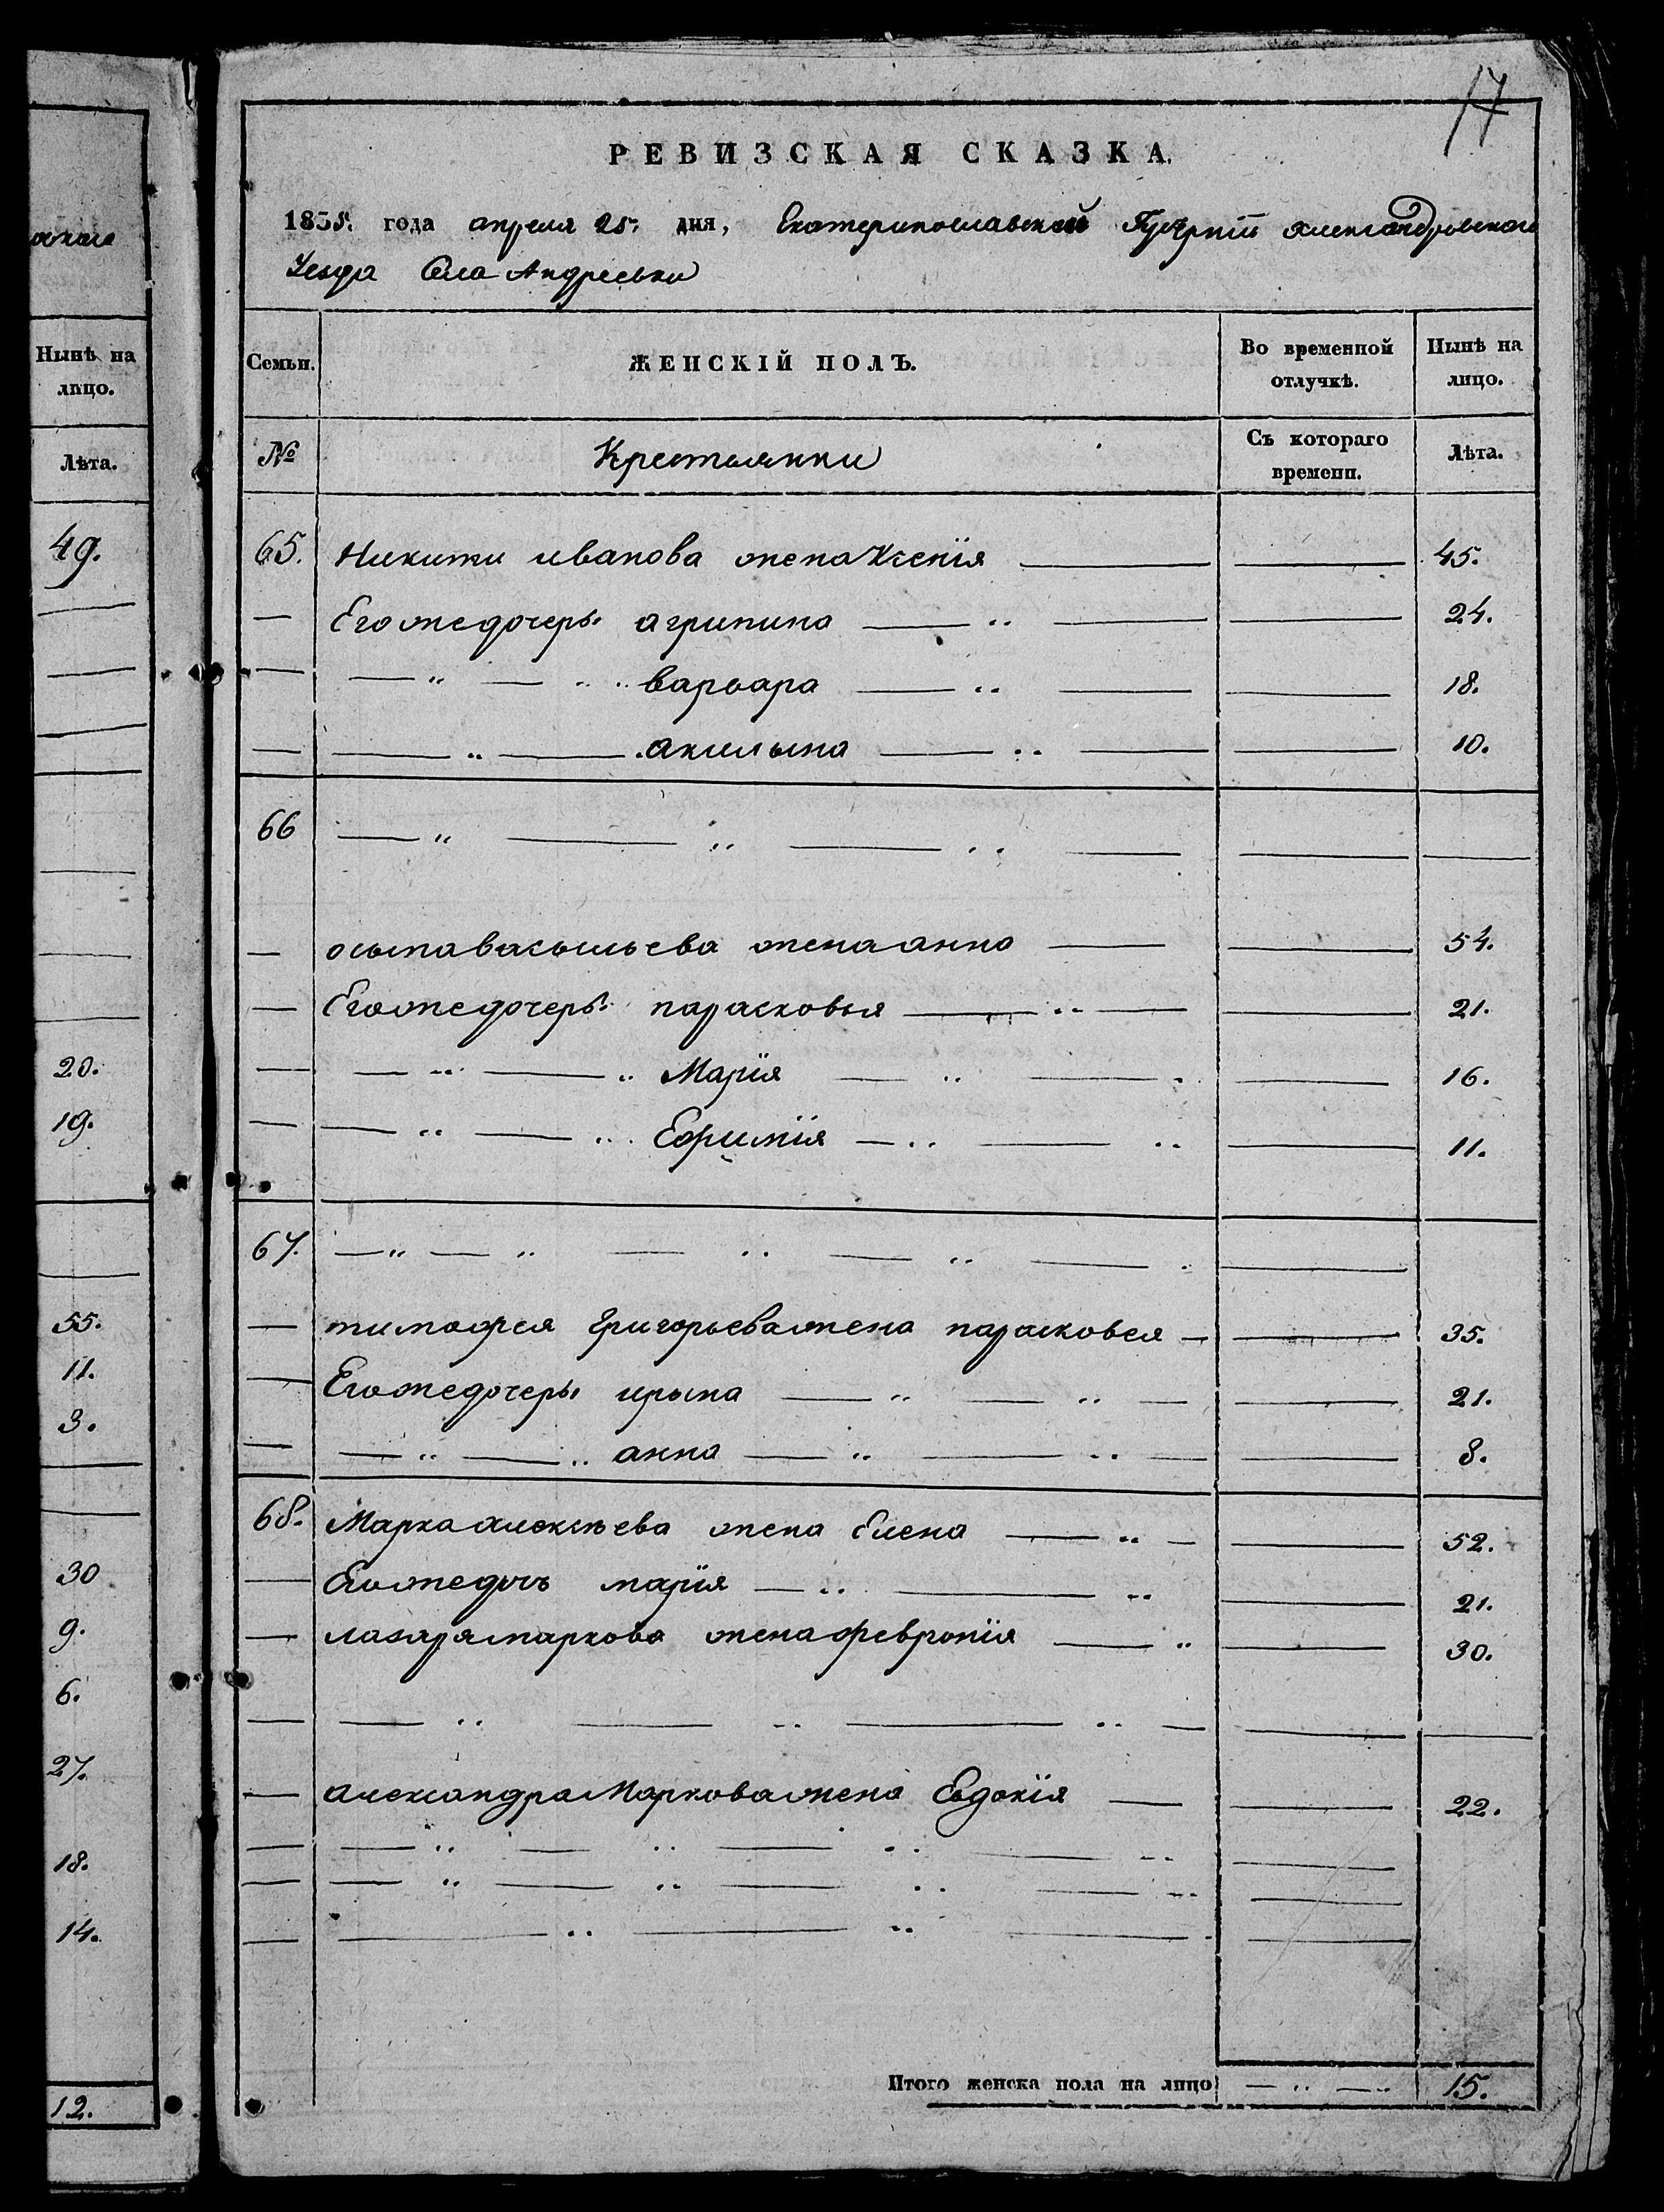 17
РЕВИЗСКАЯ СКАЗКА.
1835. года апреля 25. дня, Екатеринославской Губерніи Александровскаго
Уезда Села Андреевки
Нынѣ на лицо.
Лѣта.
49.
20.
19.
55.
11.
3.
30
9.
6.
27.
18.
14.
12.
Семьи. ЖЕНСКІЙ ПОЛЪ. Во временной отлучкѣ. Нынѣ на лицо.
№ Крестьянки Съ котораго времени. Лѣта.
65. Никиты иванова жена Ксенія 45.
— Его же дочери агрипина — " — 24.
— — " — " варвара — " — 18.
— — " — акилына — " — 10.
66 — " — " — " —
— осыпа васыльева жена анна — 54.
— Его же дочери парасковья — " — 21.
— — " — " Марія — " — 16.
— — " — " Ефимія — " — " 11.
67. — " — " — " — " —
— тимофея Григорьева жена парасковея — 35.
— Его же дочери ирына — " — " — 21.
— — " — " анна — " — " — 8.
68. Марка алексѣева жена Елена — " — 52.
— Его же дочь марія — " — " 21.
— лазаря маркова жена феврнія — " 30.
— — " — " — " —
— александра Маркова жена Евдокія — 22.
— — " — " — " — "
— — " — " — " — "
— — " — " —
Итого женска пола на лицо — " — " 15.